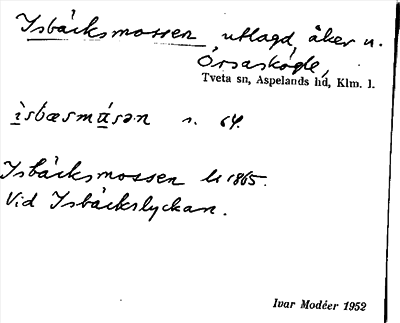 Isbäcksmossen utlagd, åker u.
Örsaskögle,
Tveta sn, Aspelands hd, Klm. l.
ìsbæsmúsən s. 64.
Isbäcksmossen lk 1865.
Vid Isbäckslyckan.
Ivar Modéer 1952